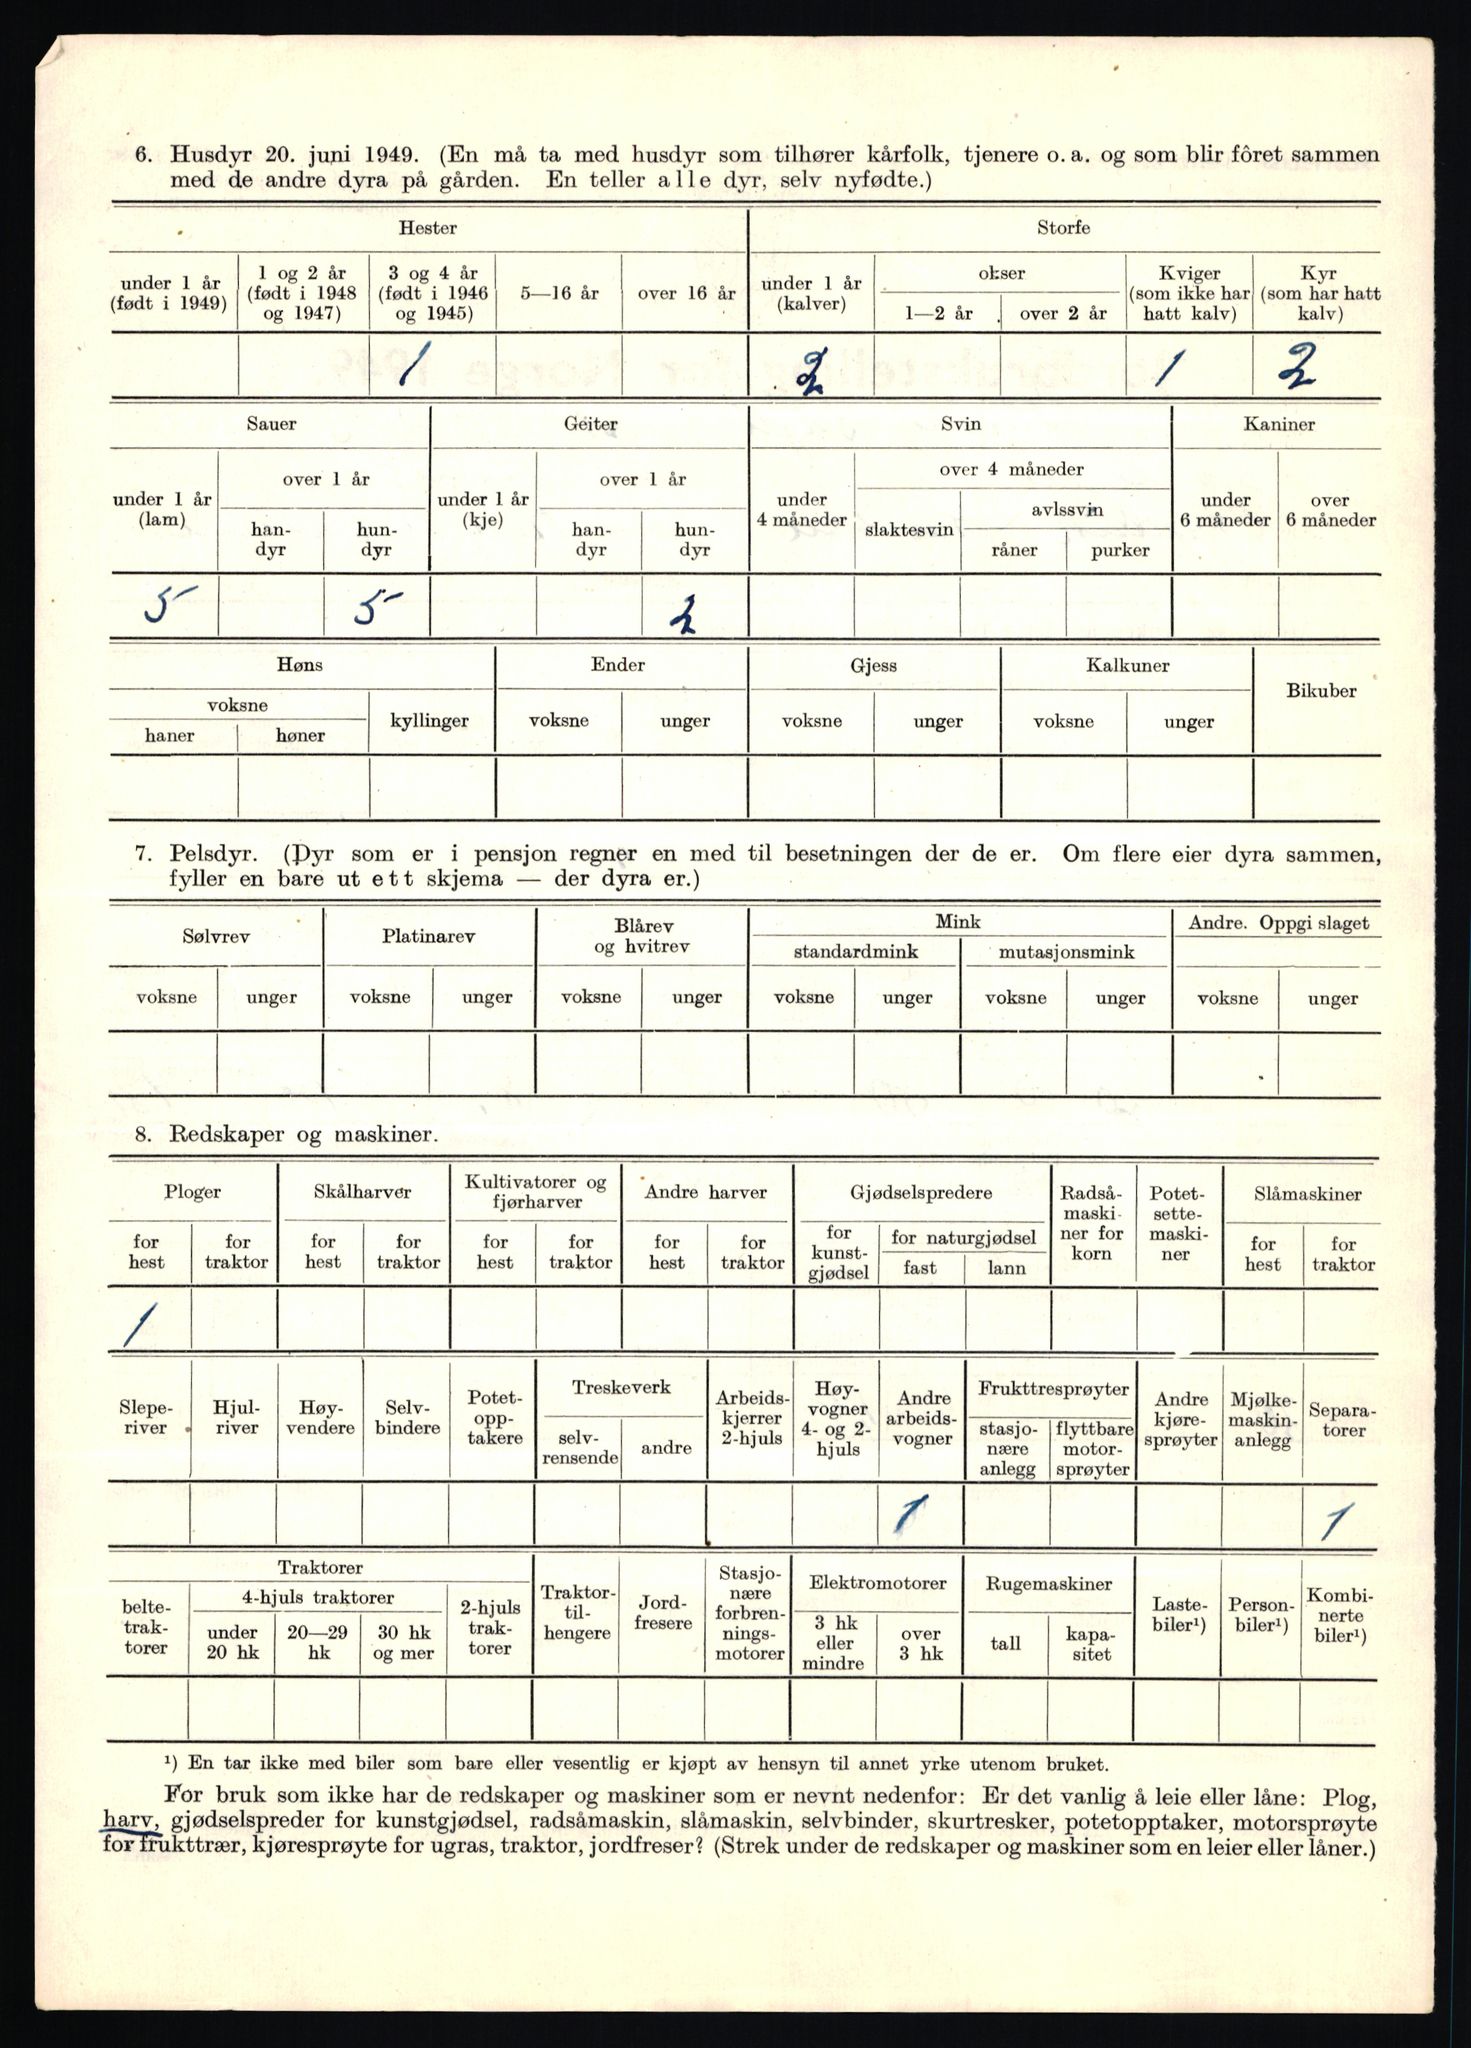 6. Husdyr 20. juni 1949. (En må ta med husdyr som tilhører kårfolk, tjenere o. a. og som blir fôret sammen
med de andre dyra på gården. En teller alle dyr, selv nyfødte.)
Hester Storfe
under 1 år (født i 1949) 1 og 2 år (født i 1948 og 1947) 3 og 4 år (født i 1946 og 1945) 5—16 år over 16 år under 1 år (kalver) okser 1—2 år over 2 år Kviger (som ikke har hatt kalv) Kyr (som har hatt kalv)
1 2 1 2
Sauer Geiter Svin Kaniner
under 1 år (lam) over 1 år han-dyr hun-dyr under 1 år (kje) over 1 år han-dyr hun-dyr under 4 måneder over 4 måneder slaktesvin avlssvin råner purker under 6 måneder over 6 måneder
5 5 2
Høns Ender Gjess Kalkuner Bikuber
voksne haner høner kyllinger voksne unger voksne unger voksne unger
7. Pelsdyr. (Dyr som er i pensjon regner en med til besetningen der de er. Om flere eier dyra sammen,
fyller en bare ut ett skjema — der dyra er.)
Sølvrev Platinarev Blårev og hvitrev Mink Andre. Oppgi slaget
standardmink mutasjonsmink
voksne unger voksne unger voksne unger voksne unger voksne unger voksne unger
8. Redskaper og maskiner.
Ploger Skålharver Kultivatorer og fjørharver Andre harver Gjødselspredere Radså-maski-ner for korn Potet-sette-maski-ner Slåmaskiner
for hest for traktor for hest for traktor for hest for traktor for hest for traktor for kunst-gjødsel for naturgjødsel fast lann for hest for traktor
1
Slepe-river Hjul-river Høy-vendere Selv-bindere Potet-opp-takere Treskeverk selv-rensende andre Arbeids-kjerrer 2-hjuls Høy-vogner 4- og 2-hjuls Andre arbeids-vogner Frukttresprøyter stasjo-nære anlegg flyttbare motor-sprøyter Andre kjøre-sprøyter Mjølke-maskin-anlegg Separa-torer
1 1
Traktorer belte-trak-torer 4-hjuls traktorer under 20 hk 20—29 hk 30 hk og mer 2-hjuls trak-torer Traktor-til-hengere Jord-fresere Stasjo-nære forbren-nings-motorer Elektromotorer 3 hk eller mindre over 3 hk Rugemaskiner tall kapa-sitet Laste-biler¹) Person-biler¹) Kombi-nerte biler¹)
¹) En tar ikke med biler som bare eller vesentlig er kjøpt av hensyn til annet yrke utenom bruket.
For bruk som ikke har de redskaper og maskiner som er nevnt nedenfor: Er det vanlig å leie eller låne: Plog,
harv, gjødselspreder for kunstgjødsel, radsåmaskin, slåmaskin, selvbinder, skurtresker, potetopptaker, motorsprøyte
for frukttrær, kjøresprøyte for ugras, traktor, jordfreser? (Strek under de redskaper og maskiner som en leier eller låner.)